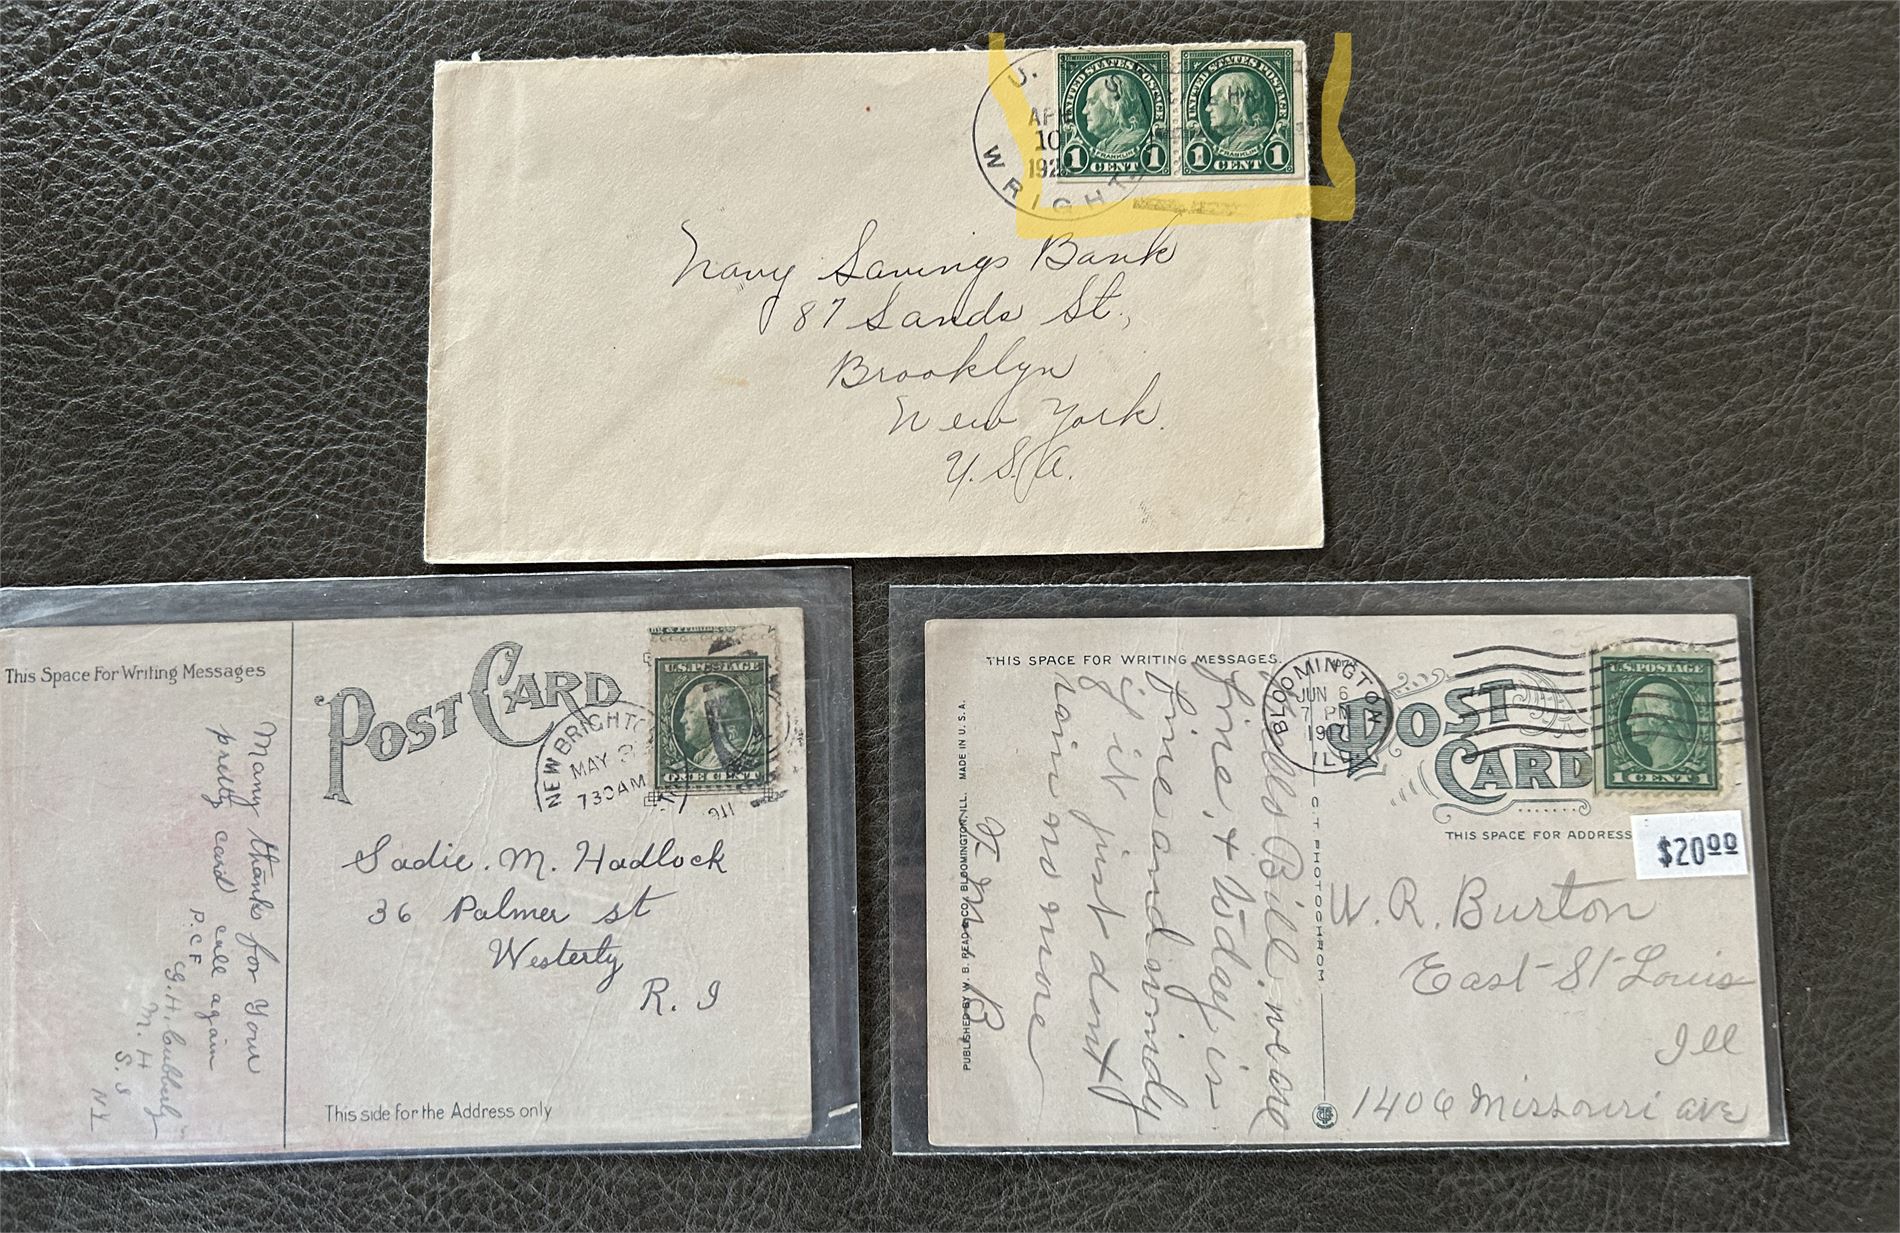 U. S. S.
APR
10
192
WRIGHT
UNITED STATES POSTAGE
FRANKLIN
1 CENT 1
UNITED STATES POSTAGE
FRANKLIN
1 CENT 1
Navy Savings Bank
87 Sands St.,
Brooklyn
New York.
U.S.A.
This Space For Writing Messages
POST CARD
U.S. POSTAGE
ONE CENT
NEW BRIGHTO
MAY 3
730 AM
911
Many thanks for your
pretty card call again
P.C.F
M. H
S. I
N Y
Sadie. M. Hadlock
36 Palmer st
Westerly
R. I
This side for the Address only
THIS SPACE FOR WRITING MESSAGES.
BLOOMINGTON
JUN 6
7 PM
191
ILL
POST
CARD
U.S. POSTAGE
1 CENT 1
THIS SPACE FOR ADDRESS
$20.00
Bill we are
fine, & today is
fine and windy
if it just dont
rain no more
M B
PUBLISHED BY W. B. READ & CO., BLOOMINGTON, ILL. MADE IN U. S. A.
C. T. PHOTOCHROM
W. R. Burton
East St Louis
Ill
1406 Missouri ave